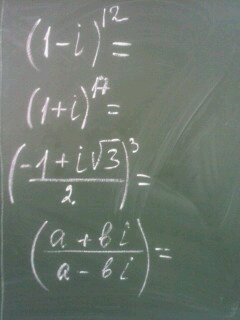 (1-i)^12 =
(1+i)^17 =
((-1+i√3)/2)^3 =
((a+bi)/(a-bi)) =